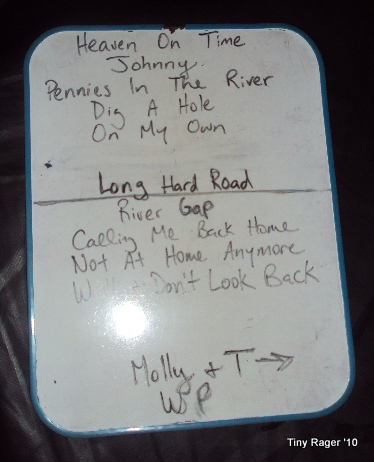 Heaven On Time
Johnny
Pennies In The River
Dig A Hole
On My Own
Long Hard Road
River Gap
Calling Me Back Home
Not At Home Anymore
Don't Look Back
Molly + T →
WP
Tiny Rager '10